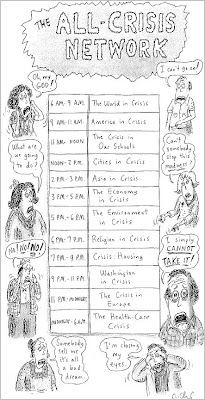 THE ALL-CRISIS
NETWORK
Oh, my
GOD!
I can't go on!
6 A.M.-9 A.M. The World in Crisis
9 A.M.-11 A.M. America in Crisis
11 A.M.-NOON The Crisis in
Our Schools
What are
we going
to do?
Can't
somebody
stop this
madness?
NOON-2 P.M. Cities in Crisis
2 P.M.-3 P.M. Asia in Crisis
3 P.M.-5 P.M. The Economy
in Crisis
5 P.M.-6 P.M. The Environment
in Crisis
NO! NO! NO!
I simply
CANNOT
TAKE IT!
6 P.M.-7 P.M. Religion in Crisis
7 P.M.-9 P.M. Crisis: Housing
9 P.M.-11 P.M. Washington
in Crisis
11 P.M.-MIDNIGHT The Crisis in
Europe
MIDNIGHT-6 A.M. The Health-Care
Crisis
Somebody
tell me
it's all
a bad
dream.
I'm closing
my
eyes.